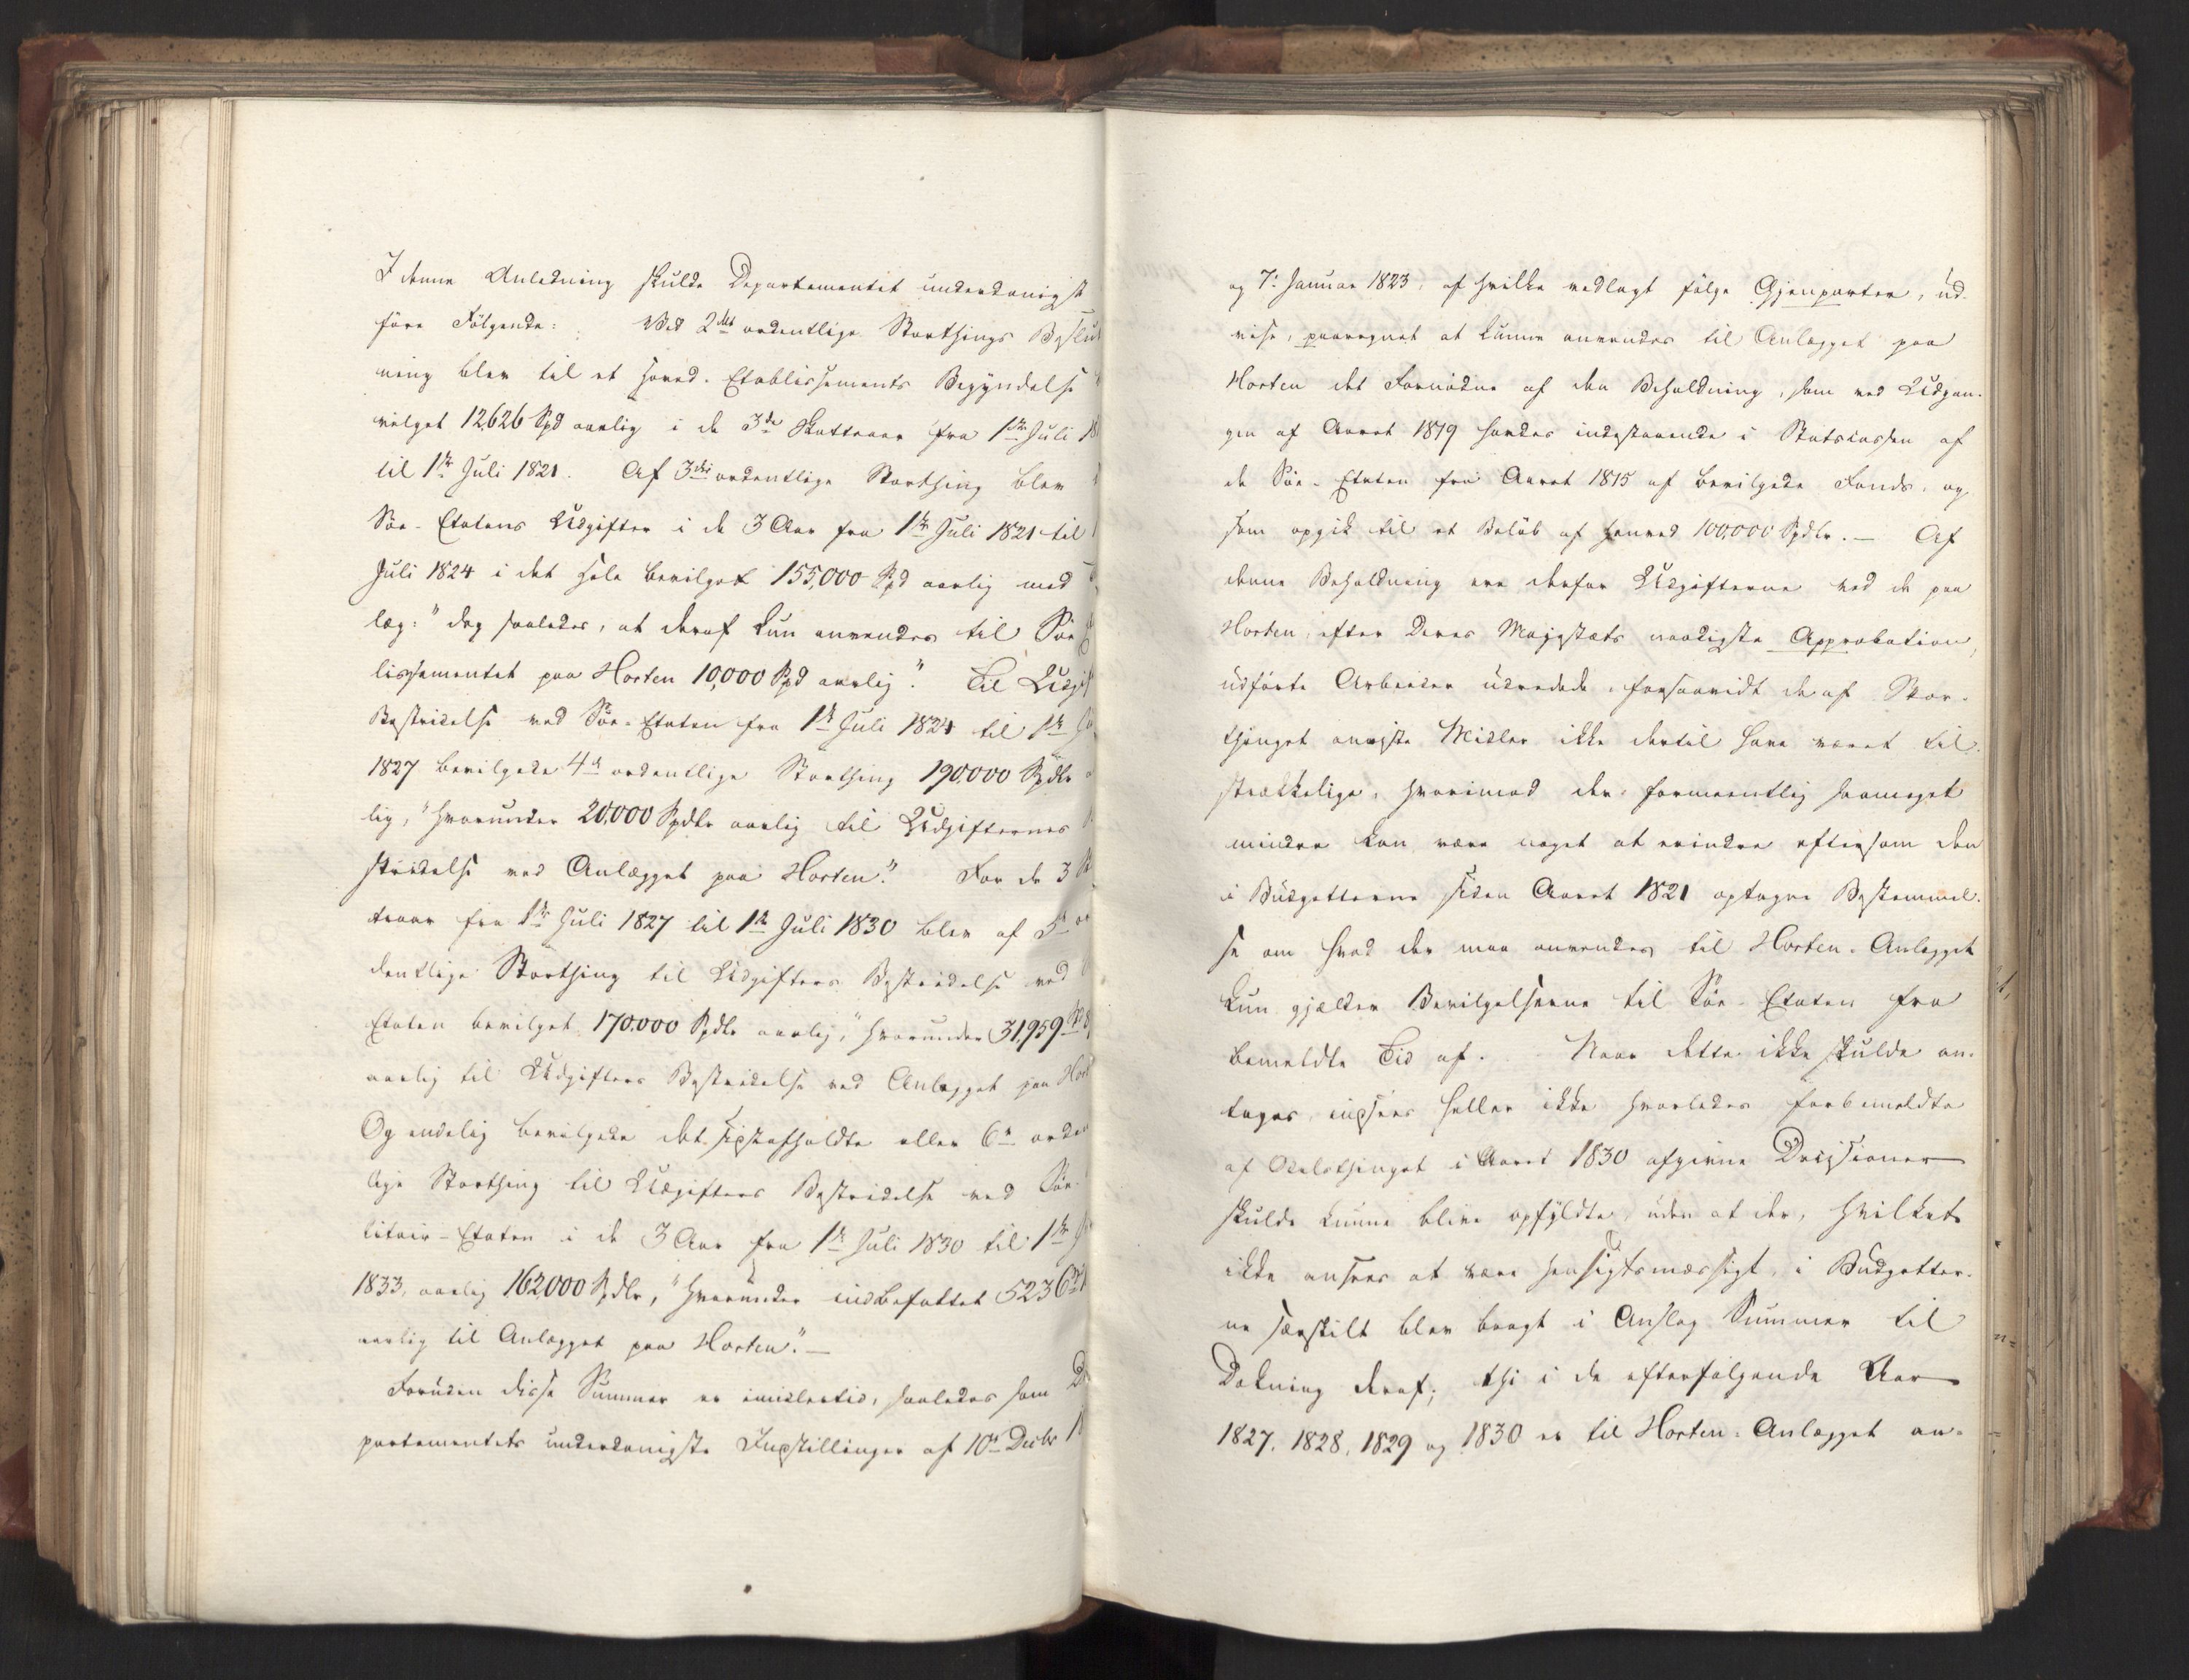 I denne Anledning skulde Departementet underdanigst
före Følgende: Ved 2det ordentlige Storthings Beslut
ning blev til et Hoved-Etablissements Begyndelse
vilget 12,626 Spd aarlig i de 3de Skatteaar fra 1ste Juli 18
til 1ste Juli 1821. Af 3die ordentlige Storthing blev
Söe-Etatens Udgifter i de 3 Aar fra 1ste Juli 1821 til 1
Juli 1824 i det Hele bevilget 155,000 Spd aarlig med
læg: "dog saaledes, at deraf kun anvendes til Söe
lissementet paa Horten 10,000 Spd aarlig". Til Udgif
Bestridelse ved Söe-Etaten fra 1ste Juli 1824 til 1ste Ju
1827 bevilgede 4de ordentlige Storthing 190,000 Spdlr a
lig, "hvorunder 20,000 Spdlr aarlig til Udgifternes
stridelse ved Anlægget paa Horten". For de 3 Sk
teaar fra 1ste Juli 1827 til 1ste Juli 1830 blev af 5te or
dentlige Storthing til Udgifters Bestridelse ved
Etaten bevilget 170,000 Spdlr aarlig, "hvorunder 31,959 Spd
aarlig til Udgifters Bestridelse ved Anlægget paa Hort
Og endelig bevilgede det sidstafholdte eller 6te orden
lige Storthing til Udgifters Bestridelse ved Söe-
litair-Etaten i de 3 Aar fra 1ste Juli 1830 til 1ste Ju
1833, aarlig 162000 Spdlr, "hvorunder indbefattet 5236
aarlig til Anlægget paa Horten". —
Foruden disse Summer er imidlertid, saaledes som De
partementets underdanigste Indstillinger af 10de Decbr 18
og 7: Januar 1823, af hvilke vedlagt følge Gjenparter, ud-
vise, paaregnet at kunne anvendes til Anlægget paa
Horten det Fornødne af den Beholdning, som ved Udgan-
gen af Aaret 1819 havdes indestaaende i Statscassen af
de Söe-Etaten fra Aaret 1815 af bevilgede Fonds, og
som opgik til et Beløb af henved 100,000 Spdlr. — Af
denne Beholdning ere derfor Udgifterne ved de paa
Horten, efter Deres Majestæts naadigste Approbation,
udførte Arbeider udredede, forsaavidt de af Stor-
thinget anviste Midler ikke dertil have været til-
strækkelige, hvorimod der formeentlig saameget
mindre kan være noget at erindre eftersom den
i Budgetterne siden Aaret 1821 optagne Bestemmel-
se om hvad der maa anvendes til Horten-Anlægget
kun gjælder Bevilgelserne til Söe-Etaten fra
bemeldte Tid af. Naar dette ikke skulde an-
tages, indsees heller ikke hvorledes forbemeldte
af Odelsthinget i Aaret 1830 afgivne Decisioner
skulde kunne blive opfyldte, uden at der, hvilket
ikke ansees at være hensigtsmæssigt, i Budgetter-
ne særskilt blev bragt i Anslag Summer til
Dekning deraf; thi i de efterfølgende Aar
1827, 1828, 1829 og 1830 er til Horten-Anlægget an-